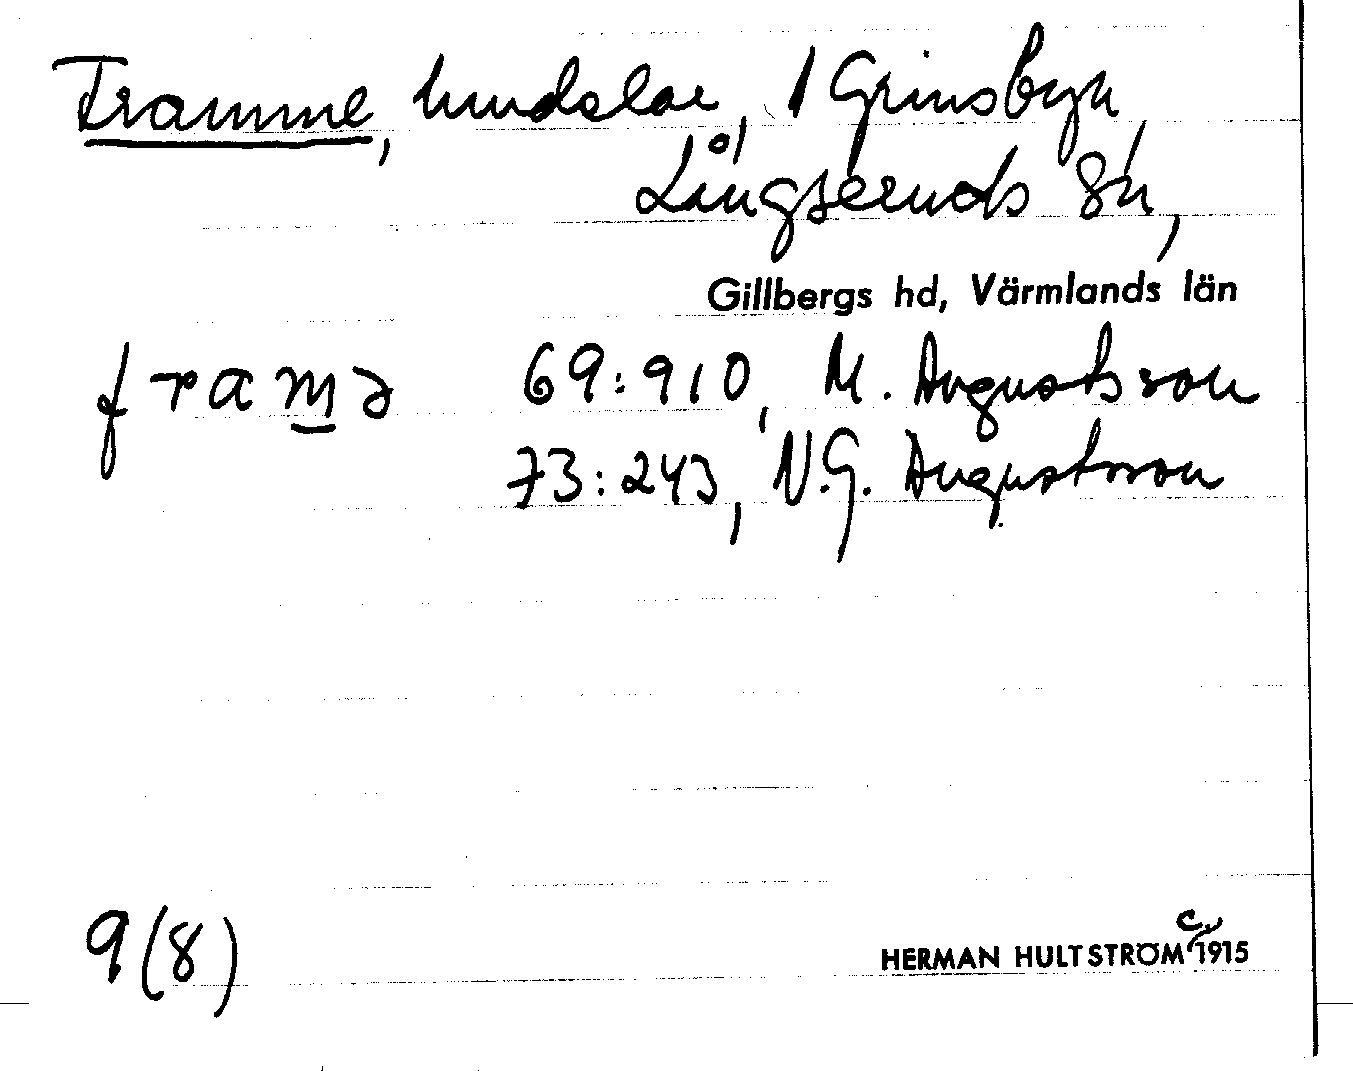 Framme, hmdelar, i Grinsbyn,
Långseruds sn,
Gillbergs hd, Värmlands län
f r a m̲ ə 69:910, M. Augustsson
73:243, N.G. Augustsson
9(8)
HERMAN HULTSTRÖM c. 1915